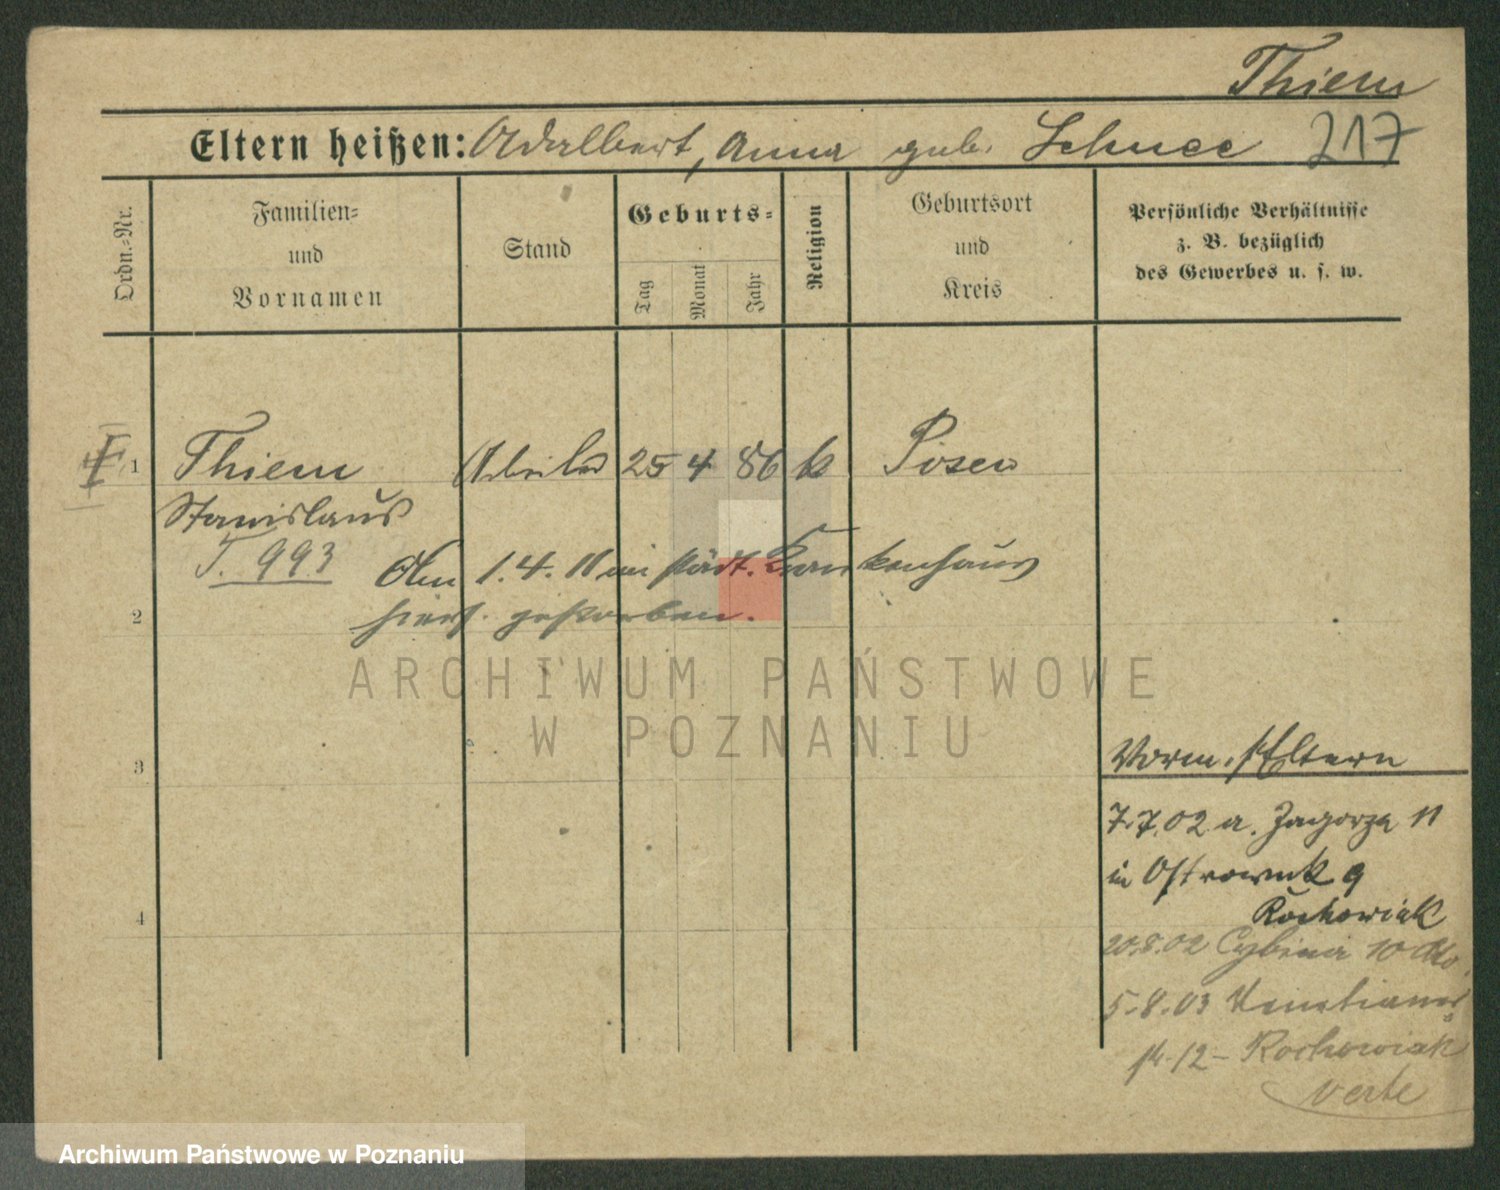 Thiem
Eltern heißen: Adalbert, Anna geb. Schnee 217
Ordn.-Nr.
Familien-
und
Vornamen
Stand
Geburts-
Tag
Monat
Jahr
Religion
Geburtsort
und
Kreis
Persönliche Verhältnisse
z. B. bezüglich
des Gewerbes u. s. w.
1 Thiem Arbeiter 25 4 86 k Posen
Stanislaus
T. 993
Am 1.4.11 im städt. Krankenhaus
hiers. gestorben.
2
ARCHIWUM PAŃSTWOWE
W POZNANIU
3
4
Vorm. s/Eltern
7.7.02 a. Zagorze 11
in Ostrowek 9
Rochowiak
20.8.02 Cybina 10
5.8.03 Venetianer
12 - Rochowiak
verte
Archiwum Państwowe w Poznaniu